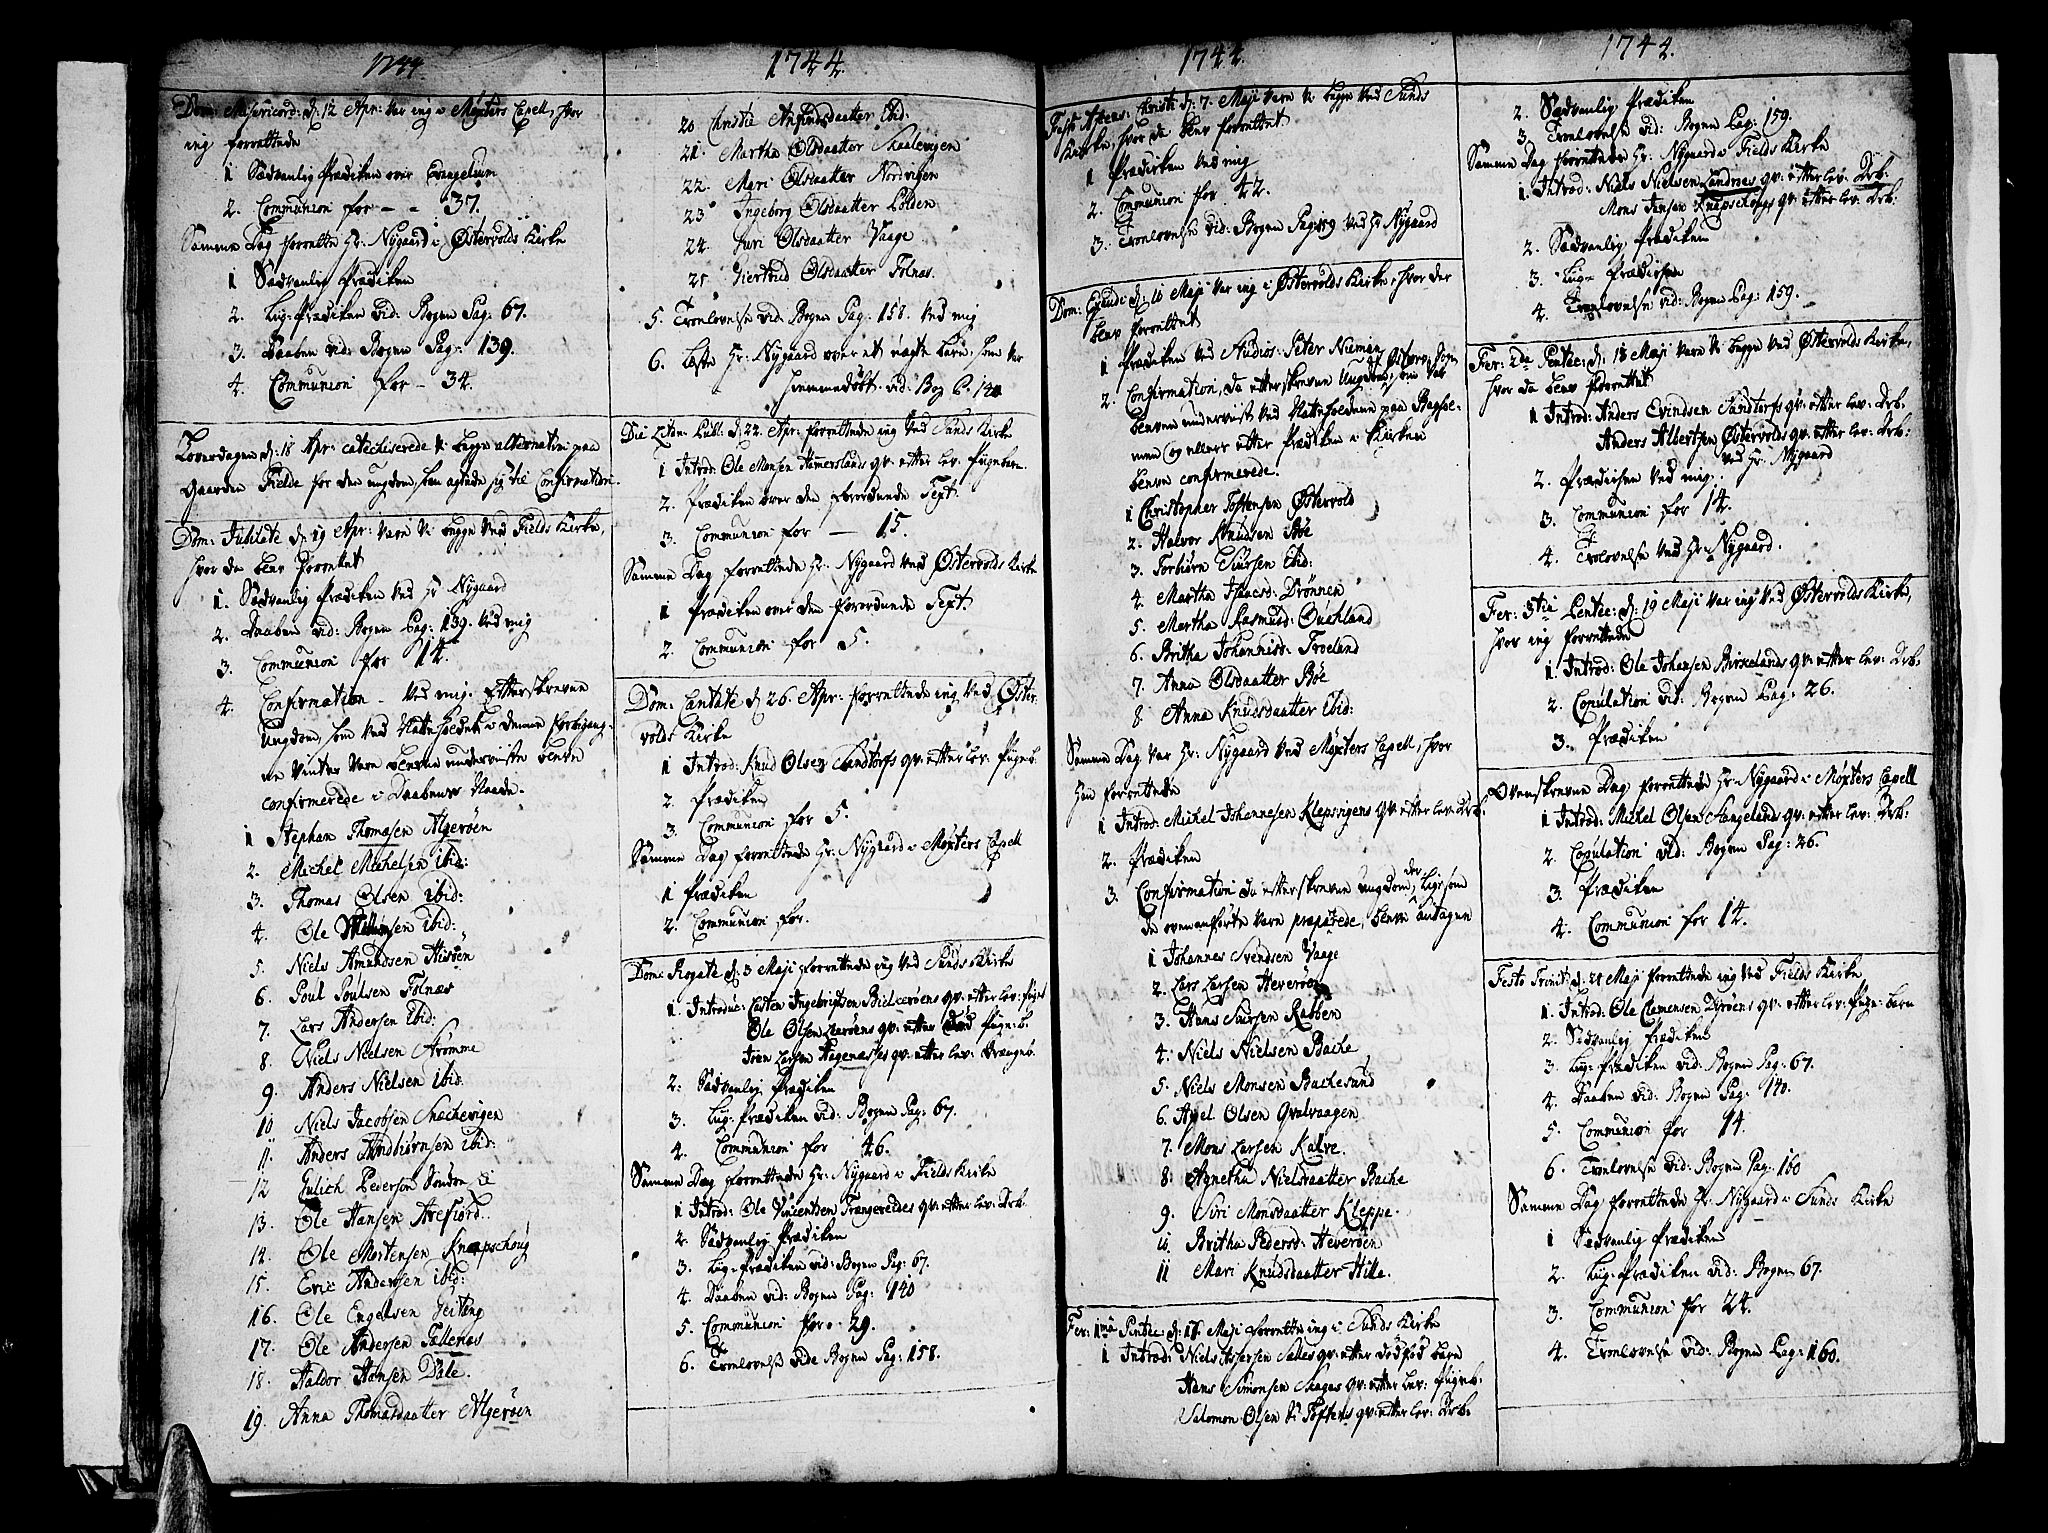 1744
Dom: Misericord: d: 12 Apr: var ieg i Møxters Capell, hvor
ieg forrettede
1 Sædvanlig Prædiken over Evangelium
2. Communion for - - 37.
Samme Dag forrettede Hr: Nygaard i Østervolds Kirke
1 Sædvanlig Prædiken
2. Liig-Prædiken vid: Bogen Pag: 67.
3. Daaben vid: Bogen Pag: 139.
4. Communion for - 34.
Løverdagen d: 18 Apr: catechiserede vi begge alternatim paa
Gaarden Fielde for den ungdom, som agtede sig til Confirmation.
Dom: Jubilate d: 19 Apr: vare vi begge ved Fields Kirke,
hvor da blev forrettet
1. Sædvanlig Prædiken ved Hr Nygaard
2. Daaben vid: Bogen Pag: 139. ved mig
3. Communion for 14.
4. Confirmation - ved mig. Efterskrevne
Ungdom, som ved i denne forbigang-
ne Vinter vare bleven underviiste bleve
confirmerede i Daabens Naade.
1 Stephan Thomasen Algerøen
2. Michel Michelsen ibid:
3. Thomas Olsen ibid:
4. Ole ibid:
5. Niels Amundsen Hisøen
6. Poul Poulsen Tolnæs
7. Lars Andersen ibid:
8. Niels Nielsen Strømme
9. Anders Nielsen ibid.
10 Niels Jacobsen Snachevigen
11. Anders ibid:
12 Gulich Pederson
13. Ole Hansen Avefiord.
14. Ole Mortensen Knapschoug
15. Eric Andersen ibid:
16. Ole Engelsen Geiting
17. Ole Andersen Tællenæs
18. Haldor Hansen Dale.
19. Anna Thomasdaatter Algerøen
1744
20 Christie Anfindsdaatter Ibid.
21. Martha Olsdaatter Skaalevigen
22. Mari Olsdaatter Nordvigen
23 Ingeborg Olsdaatter Lolden
24. Guri Olsdaatter Vaage
25 Giertrud Olsdaatter Tolnæs.
5. Trolovelse vid: Bogen Pag: 158. ved mig
6. Læste Hr: Nygaard over et ægte barn, som var
hiemmedøbt vid: Bog P. 140
Die Litan: Publ: d: 22. Apr: forrettede ieg ved Sunds Kirke
1 Introd: Ole Monsen Hammerslands qv: efter lev: Pigebarn.
2. Prædiken over den forordnede Text.
3. Communion for - 15.
Samme Dag forrettede Hr: Nygaard ved Østervolds Kirke
1 Prædiken over den forordnede Text.
2. Communion for 5.
Dom: Cantate d: 26. Apr: forrettede ieg ved Øster-
volds Kirke
1 Introd: Knud Olsen Sandtorfs qv: efter lev: Pigeb.
2. Prædiken
3. Communion for 5.
Samme Dag forrettede Hr: Nygaard i Møxters Capell
1 Prædiken
2. Communion for.
Dom: Rogate d: 3 Maji forrettede ieg ved Sunds Kirke
1. Introduc: Casten Ingebrigtsen Bielkerøens qv: efter lev: Pigeb
Ole Olsen Lerøens qv: efter Død Pigeb.
Iven Larsen Hagenæsses qv: efter lev: Drængeb.
2. Sædvanlig Prædiken
3. Liig-Prædiken vid: Bogen Pag: 67.
4. Communion for 46.
Samme Dag forrettede Hr: Nygaard i Fields Kirke
1 Introd: Ole Vincentsen Trængereides qv: efter lev: Drb.
2. Sædvanlig Prædiken
3. Liig-Prædiken vid: Bogen Pag: 67.
4. Daaben vid: Bogen Pag: 140
5. Communion for 29.
6. Trolovelse vide Bogen Pag: 158.
1744.
Festo Ascens: Christi d: 7. Maji vare vi begge ved Sunds
Kirke, hvor da blev forrettet
1 Prædiken ved mig
2. Communion for 42.
3. Trolovelse vid: Bogen Pag: 159 ved Hr Nygaard
Dom: Exaudi d: 10 Maji var ieg i Østervolds Kirke, hvor der
blev forrettet
1 Prædiken ved Studios: Peter Nieman
2. Confirmation, da efterskrevne Ungdom af Østervolds sogn, som var
bleven underviist ved
efter Prædiken i Kirken
bleven confirmerede.
1 Christopher Tostensen Østervold
2. Halvor Knudsen Bøe
3. Torbiørn Siursen Ibid:
4. Martha Isaacsd: Drønnen
5. Martha Rasmusd: Buchland
6. Britha Johannisd: Troeland
7. Anna Olsdaatter Bøe
8. Anna Knudsdaatter Ibid:
Samme Dag var Hr: Nygaard ved Møxters Capell, hvor
Han forrettede
1 Introd: Michel Johannesen Klepsvigens qv: efter lev: Drb.
2. Prædiken
3. Confirmation da efterskrevne Ungdom, der ligesom
de ovenanførte vare præparerede, bleve antagen
1 Johannes Svendsen Vaage
2. Lars Larsen Heverøen
3. Hans Siursen Rabben
4. Niels Nielsen Bache
5. Niels Monsen Bachesund
6. Axel Olsen Qvalvaagen
7. Mons Larsen Kalve.
8. Agnetha Nielsdaatter Bache
9. Siri Monsdaatter Kleppe.
10. Britha Pedersd: Heverøen
11 Mari Knudsdaatter Hille.
Fer: 1ma Pentec: d: 17. Maji forrettede ieg i Sunds Kirke
1 Introd: Niels Assersen Salles qv: efter dødfød barn
Hans Simonsen Skages qv: efter lev: Pigeb.
Salomon Olsen Toftens qv: efter lev: Drb.
1744.
2. Sædvanlig Prædiken
3. Trolovelse vid: Bogen Pag: 159.
Samme Dag forrettede Hr: Nygaard i Fields Kirke
1. Introd: Niels Nielsen Landroes qv: efter lev: Drb.
Mons Jansen Knapschougs qv: efter lev: Drb:
2. Sædvanlig Prædiken
3. Liig-Prædiken
4. Trolovelse vid: Bogen Pag: 159.
Fer: 2da Pentec: d: 18 Maji vare vi begge ved Østervolds Kirke,
hvor da blev forrettet
1 Introd: Anders Evindsen Sandtorfs qv: efter lev: Drb.
Anders Albertsen Østervolds qv: efter lev: Drb:
ved Hr: Nygaard
2. Prædiken ved mig.
3. Communion for 14.
4. Trolovelse ved Hr: Nygaard.
Fer: 3tia Pentec: d: 19 Maji var ieg ved Østervolds Kirke,
hvor ieg forrettede
1. Introd: Ole Johansen Birkelands qv: efter lev: Drb.
2. Copulation vid: Bogen Pag: 26.
3. Prædiken
Ovenskrevne Dag forrettede Hr: Nygaard i Møxters Capell
1 Introd: Michel Olsen Hangelands qv: efter lev: Drb:
2. Copulation vid: Bogen Pag: 26.
3. Prædiken
4. Communion for 14.
Festo Trinit: d: 24 Maji forrettede ieg ved Fields Kirke
1. Introd: Ole Clemensen Dyrøens qv: efter lev: Pige-barn
2. Sædvanlig Prædiken
3. Liig-Prædiken vid: Bogen Pag: 67.
4. Daaben vid: Bogen Pag: 140.
5. Communion for 14.
6. Trolovelse vid: Bogen Pag: 160
Samme Dag forrettede Hr: Nygaard i Sunds Kirke
1 Sædvanlig Prædiken
2. Liig-Prædiken vid: Bogen 67.
3. Communion for 24.
4. Trolovelse vid: Bogen Pag: 160.